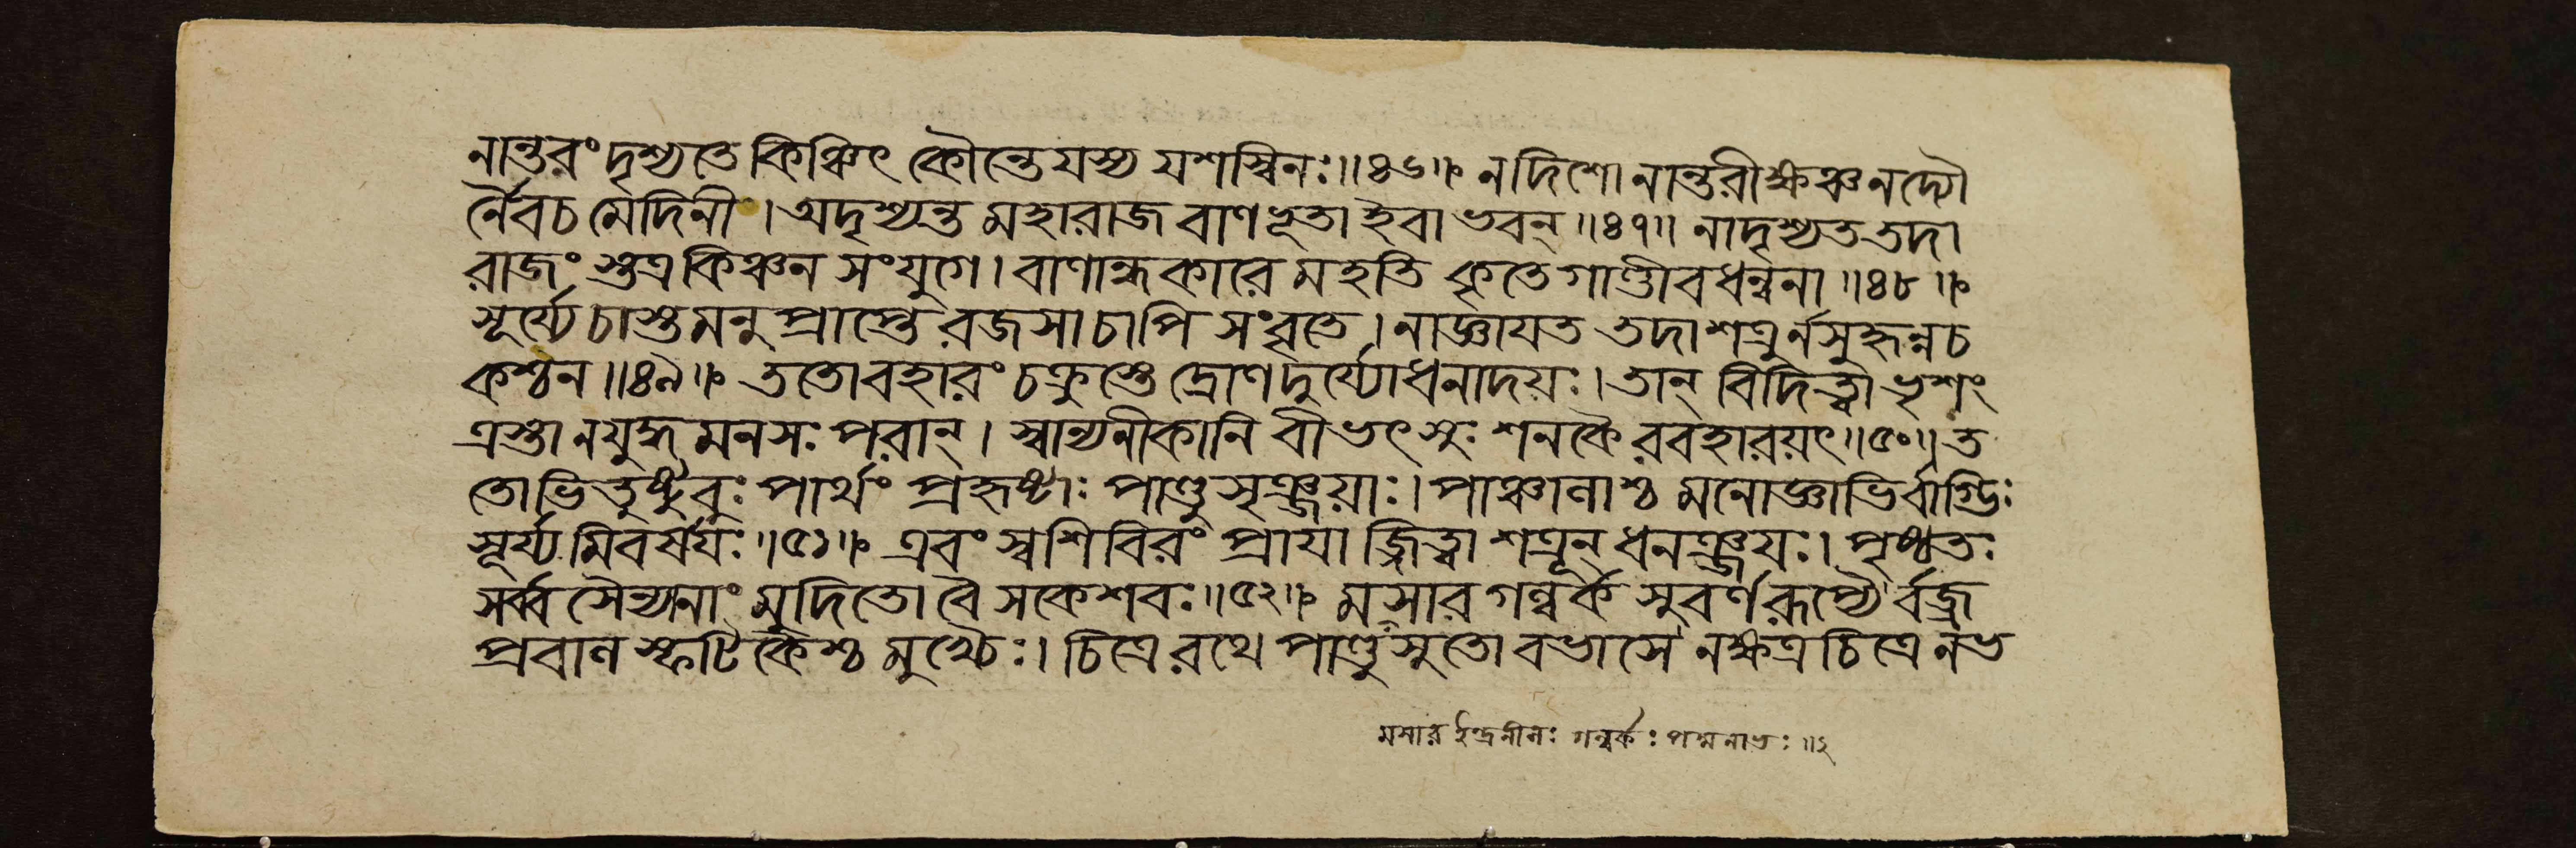 নান্তরং দৃশ্যতে কিঞ্চিৎ কৌন্তেযস্য যশস্বিনঃ॥৪৬॥ ন দিশো নান্তরীক্ষঞ্চ ন দ্যৌ
র্নৈব চ মেদিনী। অদৃশ্যন্ত মহারাজ বাণভূতা ইবাভবন্॥৪৭॥ নাদৃশ্যত তদা
রাজংস্তত্র কিঞ্চন সংযুগে। বাণান্ধকারে মহতি কৃতে গাণ্ডীবধন্বনা॥৪৮॥
সূর্য্যে চাস্তমনুপ্রাপ্তে রজসা চাপি সংবৃতে। নাজ্ঞাযত তদা শত্রুর্ন সুহৃন্ন চ
কশ্চন॥৪৯॥ ততোবহারং চক্রুস্তে দ্রোণদুর্য্যোধনাদয়ঃ। তান্ বিদিত্বা ভৃশং
ত্রস্তানযুদ্ধমনসঃ পরান্। স্বান্যনীকানি বীভৎসুঃ শনকৈরবহারয়ৎ॥৫০॥ ত
তোভিতুষ্টুবুঃ পার্থং প্রহৃষ্টাঃ পাণ্ডুসৃঞ্জয়াঃ। পাঞ্চালাশ্চ মনোজ্ঞাভির্বাগ্ভিঃ
সূর্য্যমিবর্ষযঃ॥৫১॥ এবং স্বশিবিরং প্রাযাজ্জিত্বা শত্রূন্ ধনঞ্জযঃ। পৃষ্ঠতঃ
সর্ব্বসৈন্যানাং মুদিতো বৈ সকেশবঃ॥৫২॥ মসারগল্বর্কসুবর্ণরূপ্যৈর্বজ্র
প্রবালস্ফটিকৈশ্চ মুখ্যৈঃ। চিত্রে রথে পাণ্ডুসুতো বভাসে নক্ষত্রচিত্রে নভ
মসার ইন্দ্রনীলঃ গল্বর্কঃ পদ্মনাভঃ॥২